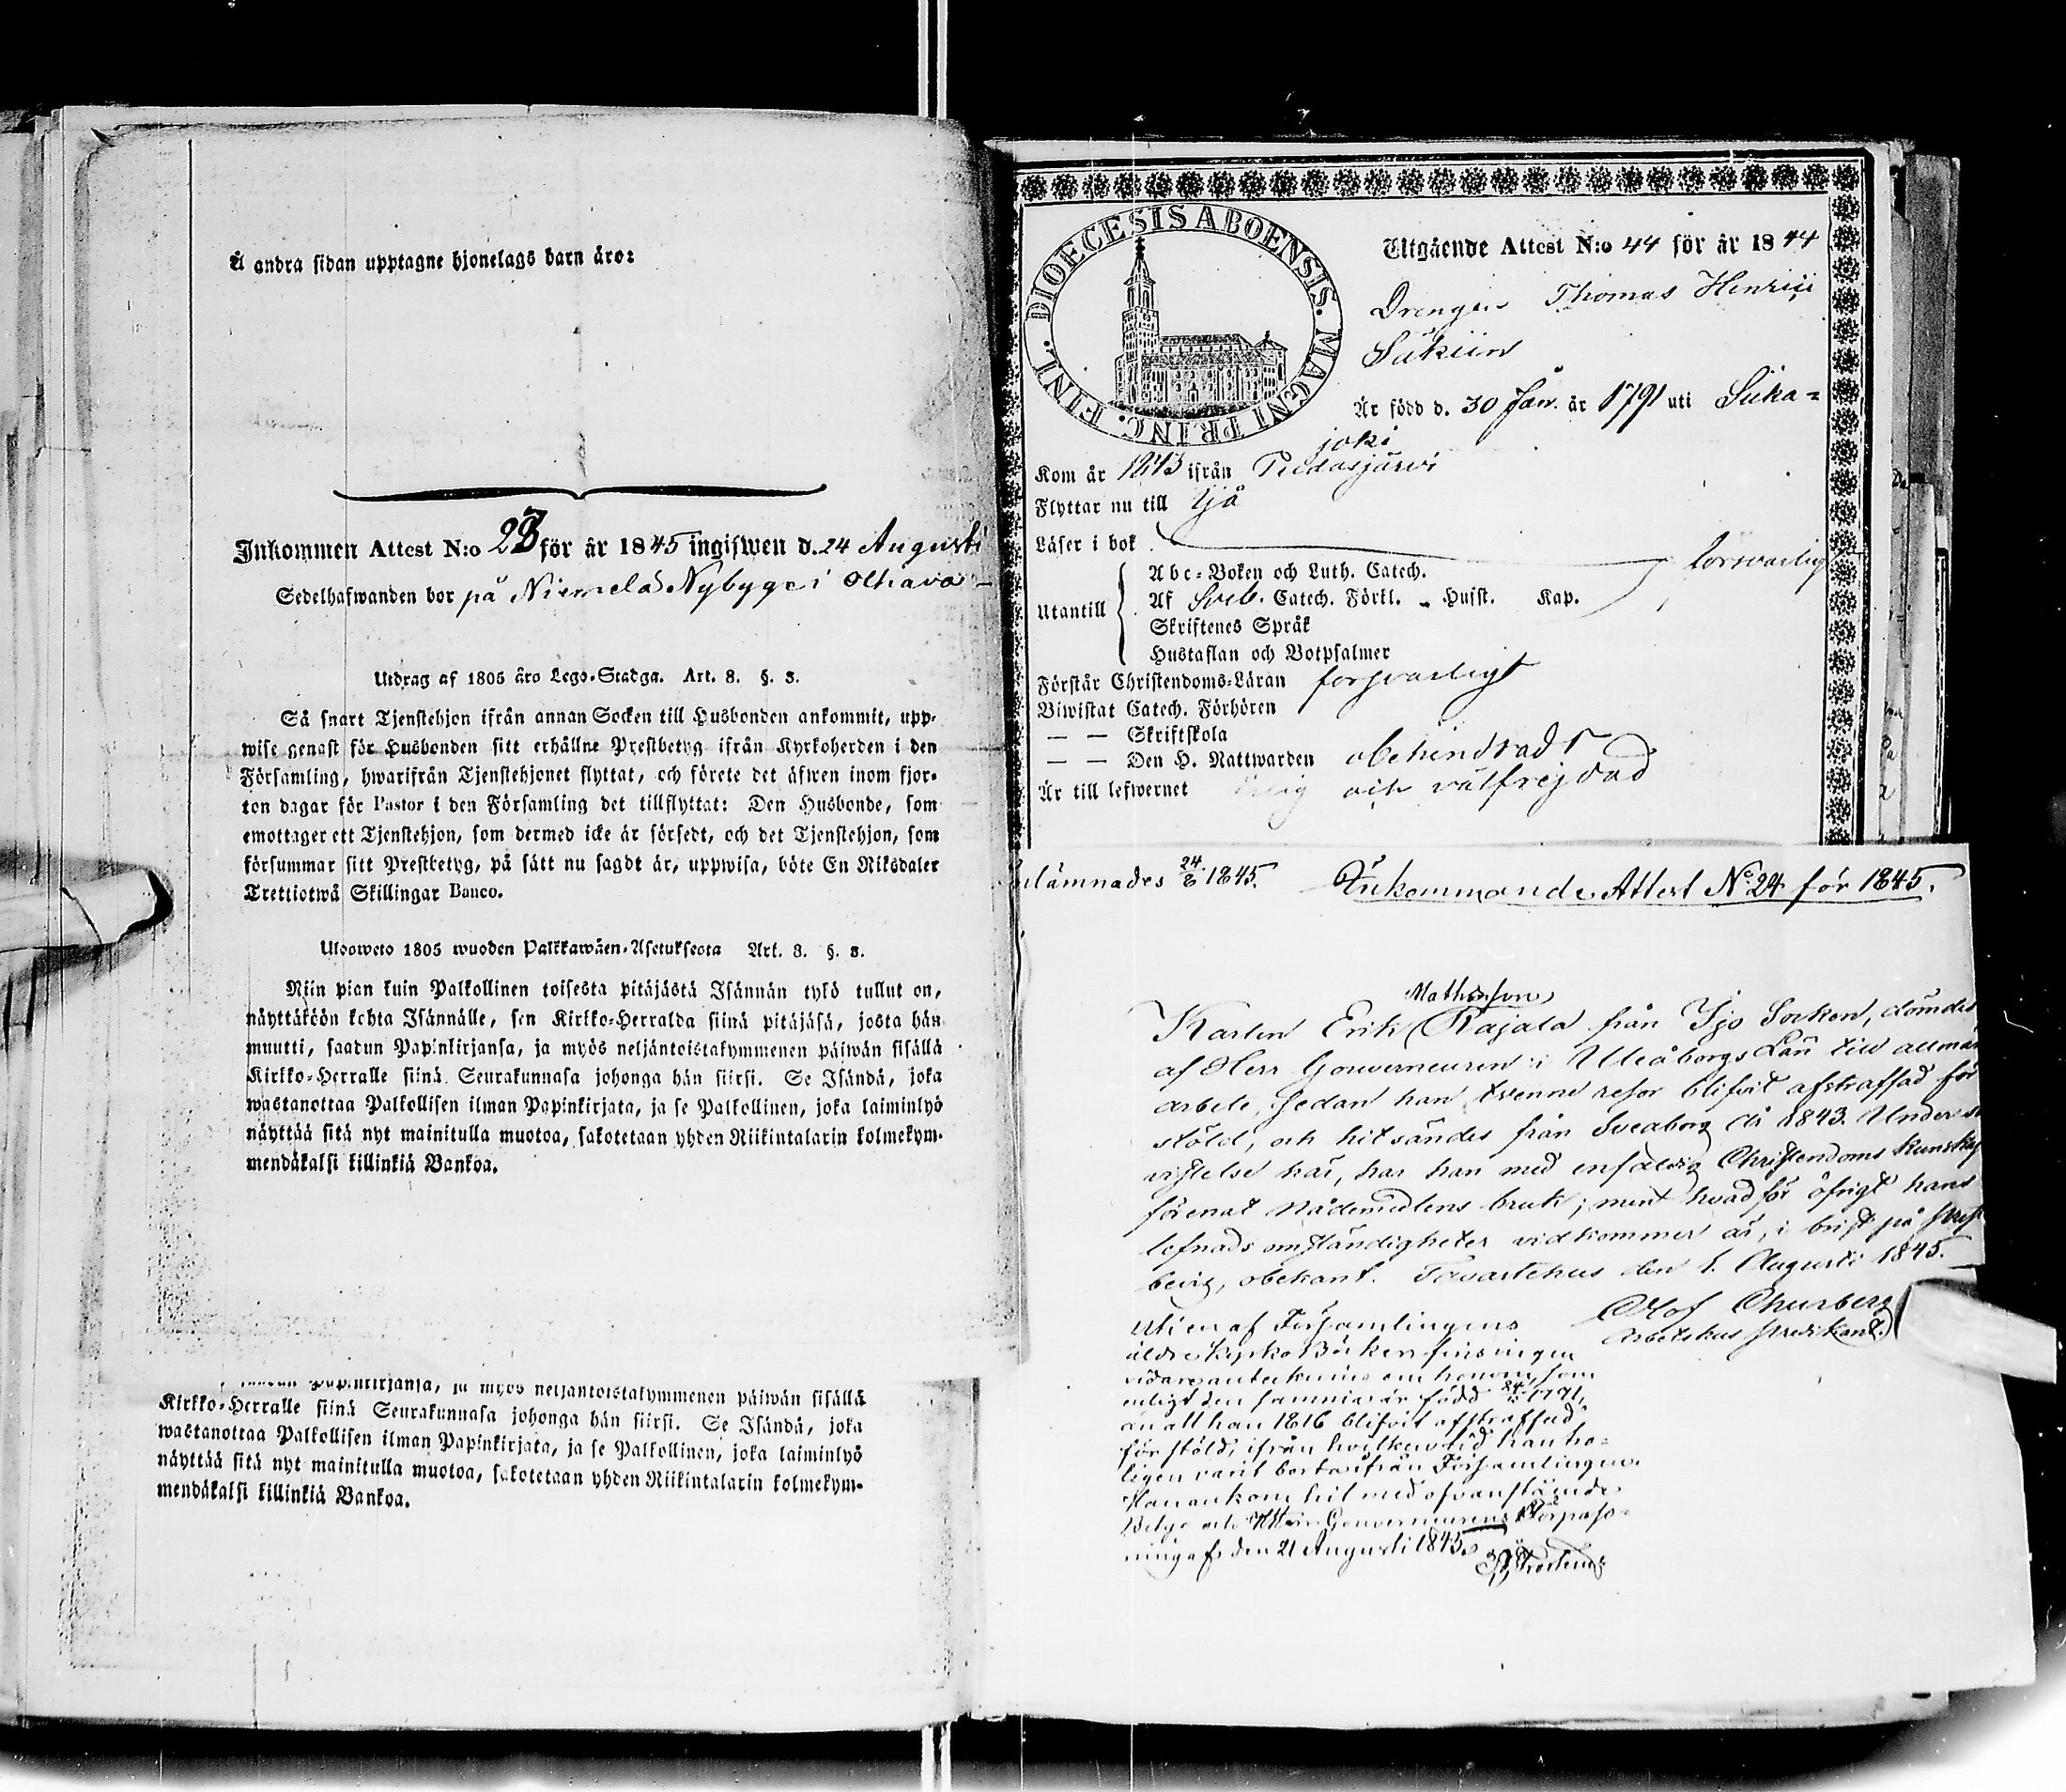 Å andra sidan upptagne hjonelags barn äro:
Inkommen Attest N:o 23 för år 1845 ingifwen d. 24 Augusti
Sedelhafwanden bor på Niemelä Nybygge i Olhava
Utdrag af 1805 års Lego-Stadga. Art. 8. §. 3.
Så snart Tjenstehjon ifrån annan Socken till Husbonden ankommit, upp-
wise genast för Husbonden sitt erhållne Prestbetyg ifrån Kyrkoherden i den
Församling, hwarifrån Tjenstehjonet flyttat, och förete det äfwen inom fjor-
ton dagar för Pastor i den Församling det tillflyttat: Den Husbonde, som
emottager ett Tjenstehjon, som dermed icke är försedt, och det Tjenstehjon, som
försummar sitt Prestbetyg, på sätt nu sagdt är, uppwisa, böte En Riksdaler
Trettiotwå Skillingar Banco.
Ulosweto 1805 wuoden Palkkawäen-Asetuksesta Art. 8. §. 3.
Niin pian kuin Palkollinen toisesta pitäjästä Isännän tykö tullut on,
näyttäköön kohta Isännälle, sen Kirkko-Herralda siinä pitäjäsä, josta hän
muutti, saadun Papinkirjansa, ja myös neljäntoistakymmenen päiwän sisällä
Kirkko-Herralle siinä Seurakunnasa johonga hän siirsi. Se Isändä, joka
wastanottaa Palkollisen ilman Papinkirjata, ja se Palkollinen, joka laiminlyö
näyttää sitä nyt mainitulla muotoa, sakotetaan yhden Riikintalarin kolmekym-
mendäkaksi killinkiä Bankoa.
Papinkirjansa, ja myös neljäntoistakymmenen päiwän sisällä
Kirkko-Herralle siinä Seurakunnasa johonga hän siirsi. Se Isändä, joka
wastanottaa Palkollisen ilman Papinkirjata, ja se Palkollinen, joka laiminlyö
näyttää sitä nyt mainitulla muotoa, sakotetaan yhden Riikintalarin kolmekym-
mendäkaksi killinkiä Bankoa.
DIOECESIS ABOENSIS. MAGNI PRINC. FINL.
Utgående Attest N:o 44 för år 1844
Drengen Thomas Henric
Är född d. 30 Jan. år 1791 uti Siika-
joki
Kom år 1843 ifrån Pudasjärvi
Flyttar nu till Ijå
Läser i bok försvarlig
Utantill Abc-Boken och Luth. Catech.
Af Sveb. Catech. Förkl. - Hufst. Kap.
Skriftenes Språk
Hustaflan och Botpsalmer
Förstår Christendoms-Läran försvarligt
Biwistat Catech. Förhören
— — Skriftskola
— — Den H. Nattwarden obehindrad
Är till lefwernet ärlig och välfrejdad
Inlämnades 24/8 1845. Inkommande Attest No 24 för 1845.
Mathsson
Karlen Erik Kajala från Ijo Socken, dömdes
af Herr Gouverneuren i Uleåborgs Län till allmän
arbete, sedan han tvenne resor blifvit afstraffad för
stöld, och hitsändes från Sveaborg år 1843. Under
vistelse här, har han med enfaldig Christendoms kunskap
förenat Nådemedlens bruk; men hvad för öfrigt hans
lefnads omständigheter vidkommer är, i brist på prest
betyg, obekant. Tavastehus den 1. Augusti 1845.
Olof Churberg
Arbetshus predikant.
Uti en af Församlingens
äldre Kyrko Böcker finnes ingen
vidare anteckning om honom, som
enligt den samma är född 1791,
än att han 1816 blifvit afstraffad
för stöld, ifrån hvilken tid han tro-
ligen varit borta ifrån Församlingen.
Han ankom hit med ofvanstående
Betyg och Herr Gouverneurens Förpass-
ning af den 21 Augusti 1845.